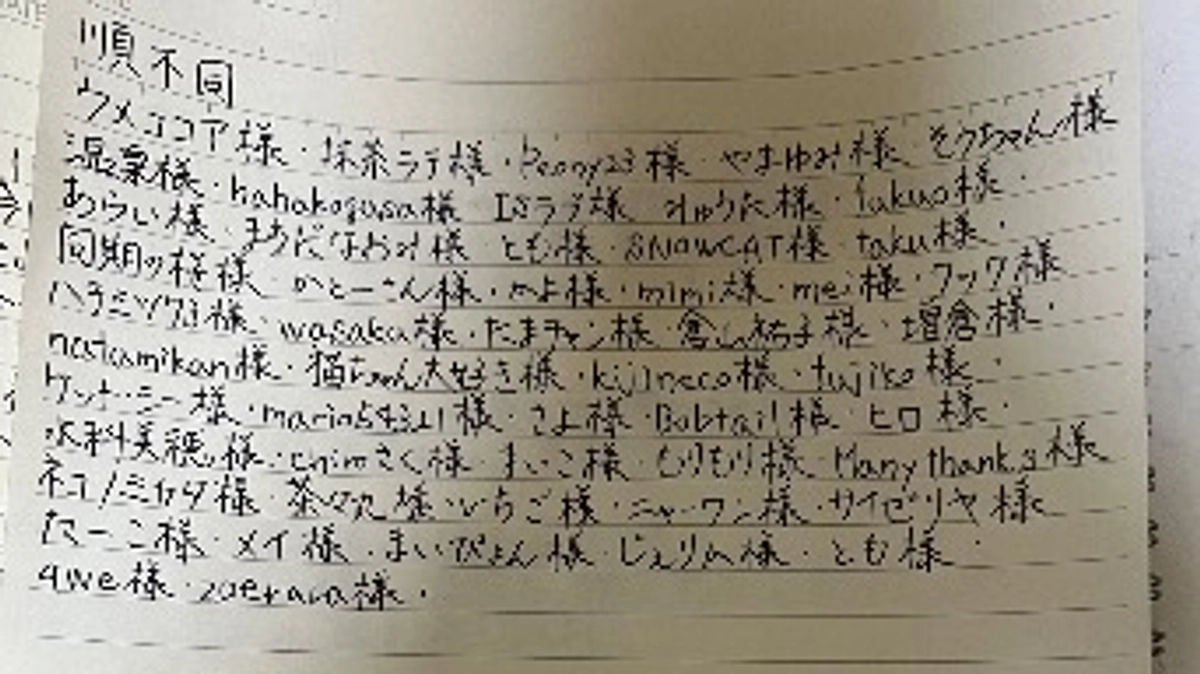 順不同
ウメココア様・抹茶ラテ様・Peony23様・やまゆみ様・そうちゃん様
温泉様・hahakogusa様 ISラブ様 みゅうた様・takuo様・
あらい様・まちだなおみ様 とも様・SNOWCAT様・taku様・
同期の桜様・かとーさん様・かよ様・mimi様・mei様・フック様
ハチミツ様・wasaku様・たまチャン様・倉山裕子様・増倉様・
natumikan様・猫ちゃん大好き様・kijineco様・fujiko様・
ケットーシー様・marin54321様・さよ様・Bobtail様・ヒロ様・
水科美穂様・chiroさく様・まいこ様・もりもり様・Many thanks様
ネコノミカタ様・茶々丸様・いちご様・ニャーワン様・サイゼリヤ様
たーこ様・メイ様・まいぴょん様・じぇりム様・とも様・
awe様・様・